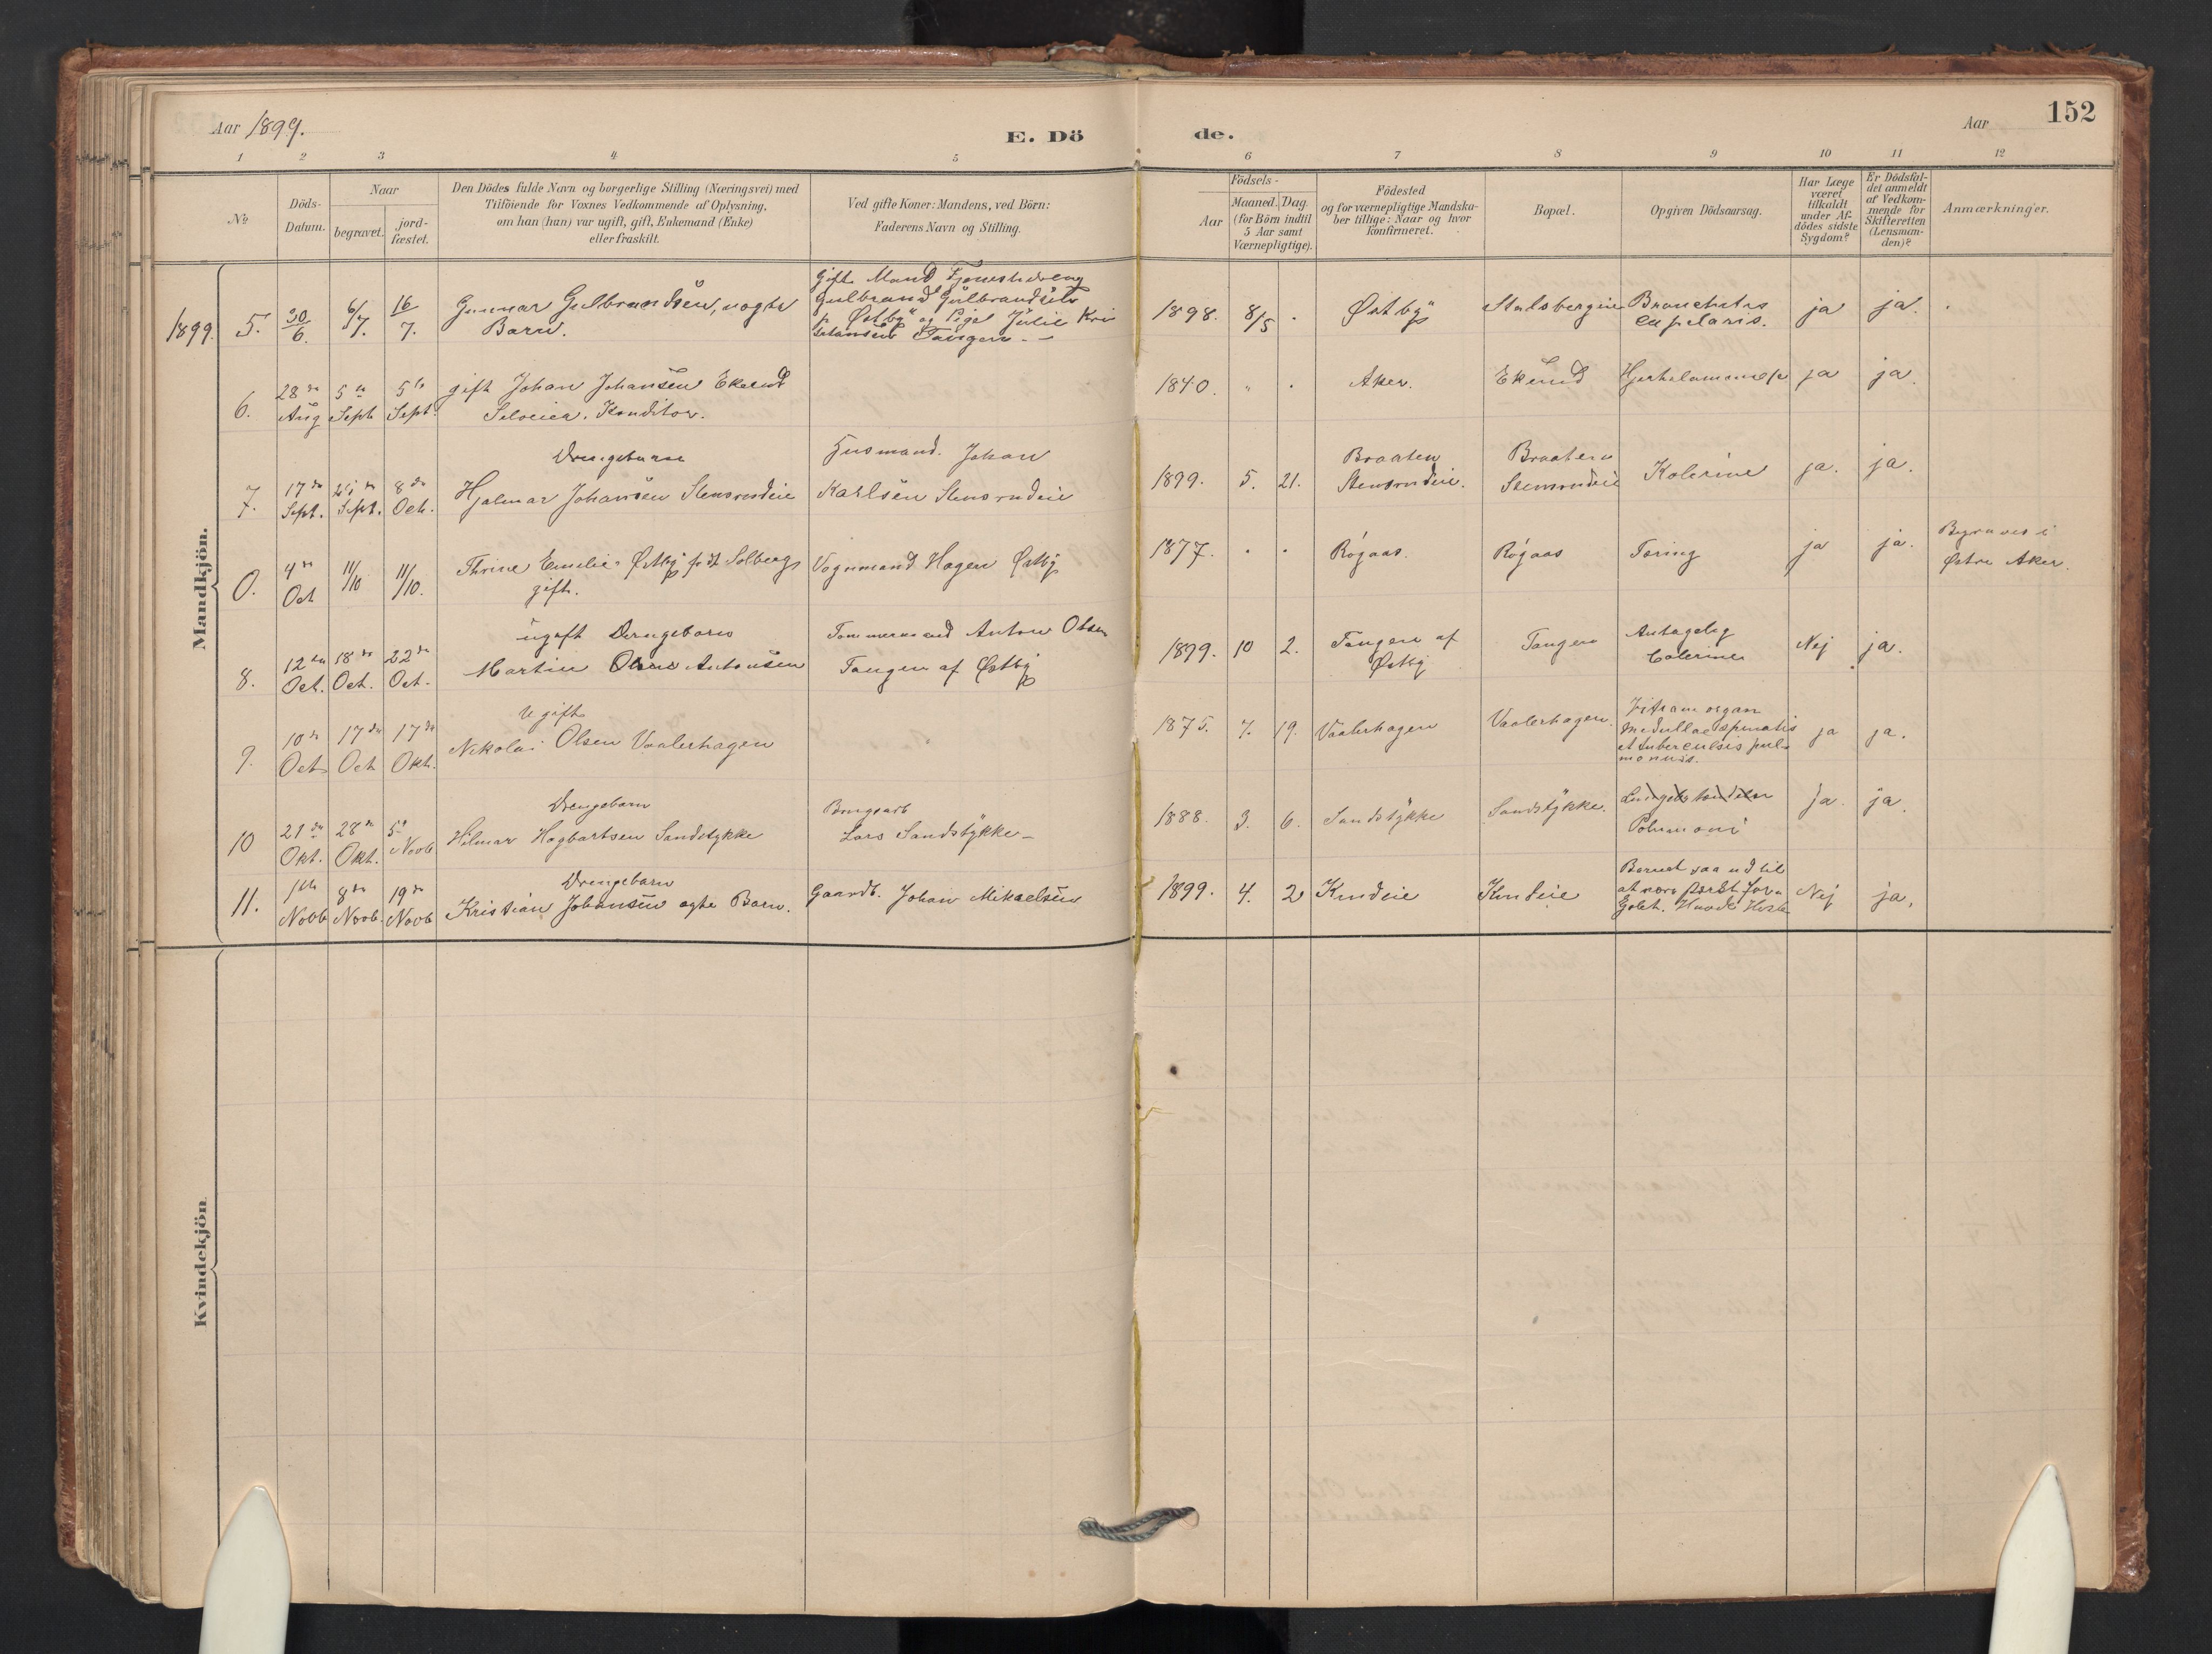 152
Aar 1899.
E. Dö de.
Aar
1 2 3 4 5 6 7 8 9 10 11 12
No
Döds-Datum.
Naar
begravet.
jord-fæstet.
Den Dödes fulde Navn og borgerlige Stilling (Næringsvei) med
Tilföiende for Voxnes Vedkommende af Oplysning,
om han (hun) var ugift, gift, Enkemand (Enke)
eller fraskilt.
Ved gifte Koner: Mandens, ved Börn:
Faderens Navn og Stilling.
Födsels-
Aar
Maaned. Dag.
(for Börn indtil
5 Aar samt
Værnepligtige).
Födested
og for værnepligtige Mandska-
ber tillige: Naar og hvor
konfirmeret.
Bopæl.
Opgiven Dödsaarsag.
Har Læge
været
tilkaldt
under Af-
dödes sidste
Sygdom?
Er Dödsfal-
det anmeldt
af Vedkom-
mende for
Skifteretten
(Lensman-
den)?
Anmærkninger.
Mandkjön.
1899. 5. 30/6. 6/7. 16/7.
Gunnar Gulbrandsen, uægte
Barn.
Gift Mand Tjenestedreng
Gulbrand Gulbrandsen
p. Østby og Pige Julie Kri
stiansen Tangen
1898. 8/5 . Østby Stulsbergeie Bronchitis
capilaris. ja ja.
6. 28de Aug 5te Sept 5te Sept.
gift Johan Johansen Ekerud
Selveier. Konditor.
1840. " . Aker. Ekerud ja ja.
7. 17de Sept. Sept. 8de Oct.
Drengebarn
Hjalmar Johansen Stensrudeie
Husmand. Johan
Karlsen Stensrudeie
1899. 5. 21. Braaten
Stensrudeie. Braaten
Stensrudeie Kolerine ja. ja.
0. 4de Oct 11/10 11/10.
Thrine Emilie Østby født Solberg
gift.
Vognmand Hagen Østby
1877. . . Røgaas. Røgaas Tæring ja ja. Begraves i
Østre Aker.
8. 12te Oct. 18de Oct. 22de Oct.
ugift Drengebarn
Martin Antonsen
Tømmermand Anton Olsen
Tangen af Østby
1899. 10 2. Tangen af
Østby Tangen Antagelig
Colerine Nej ja.
9. 10de Oct 17de Oct 17de Okt.
Ugift
Nikolai Olsen Vaalerhagen
1875. 7. 19. Vaalerhagen Vaalerhagen. organ
Medullae spinalis
et tuberculosis pul
monus. ja ja.
10 21de Okt. 28de Okt. 5te Novb
Drengebarn
Hilmar Hagbartsen Sandstykke
Lars Sandstykke
1888. 3. 6. Sandstykke Sandstykke. Ja. ja.
11. 1ste Novb 8de Novb. 19de Novb
Drengebarn
Kristian Johansen ægte Barn.
Gaardb. Johan Mikaelsen
1899. 4. 2 Krudeie Krudeie Barnet saa ud til
at være Nej ja.
Kvindekjön